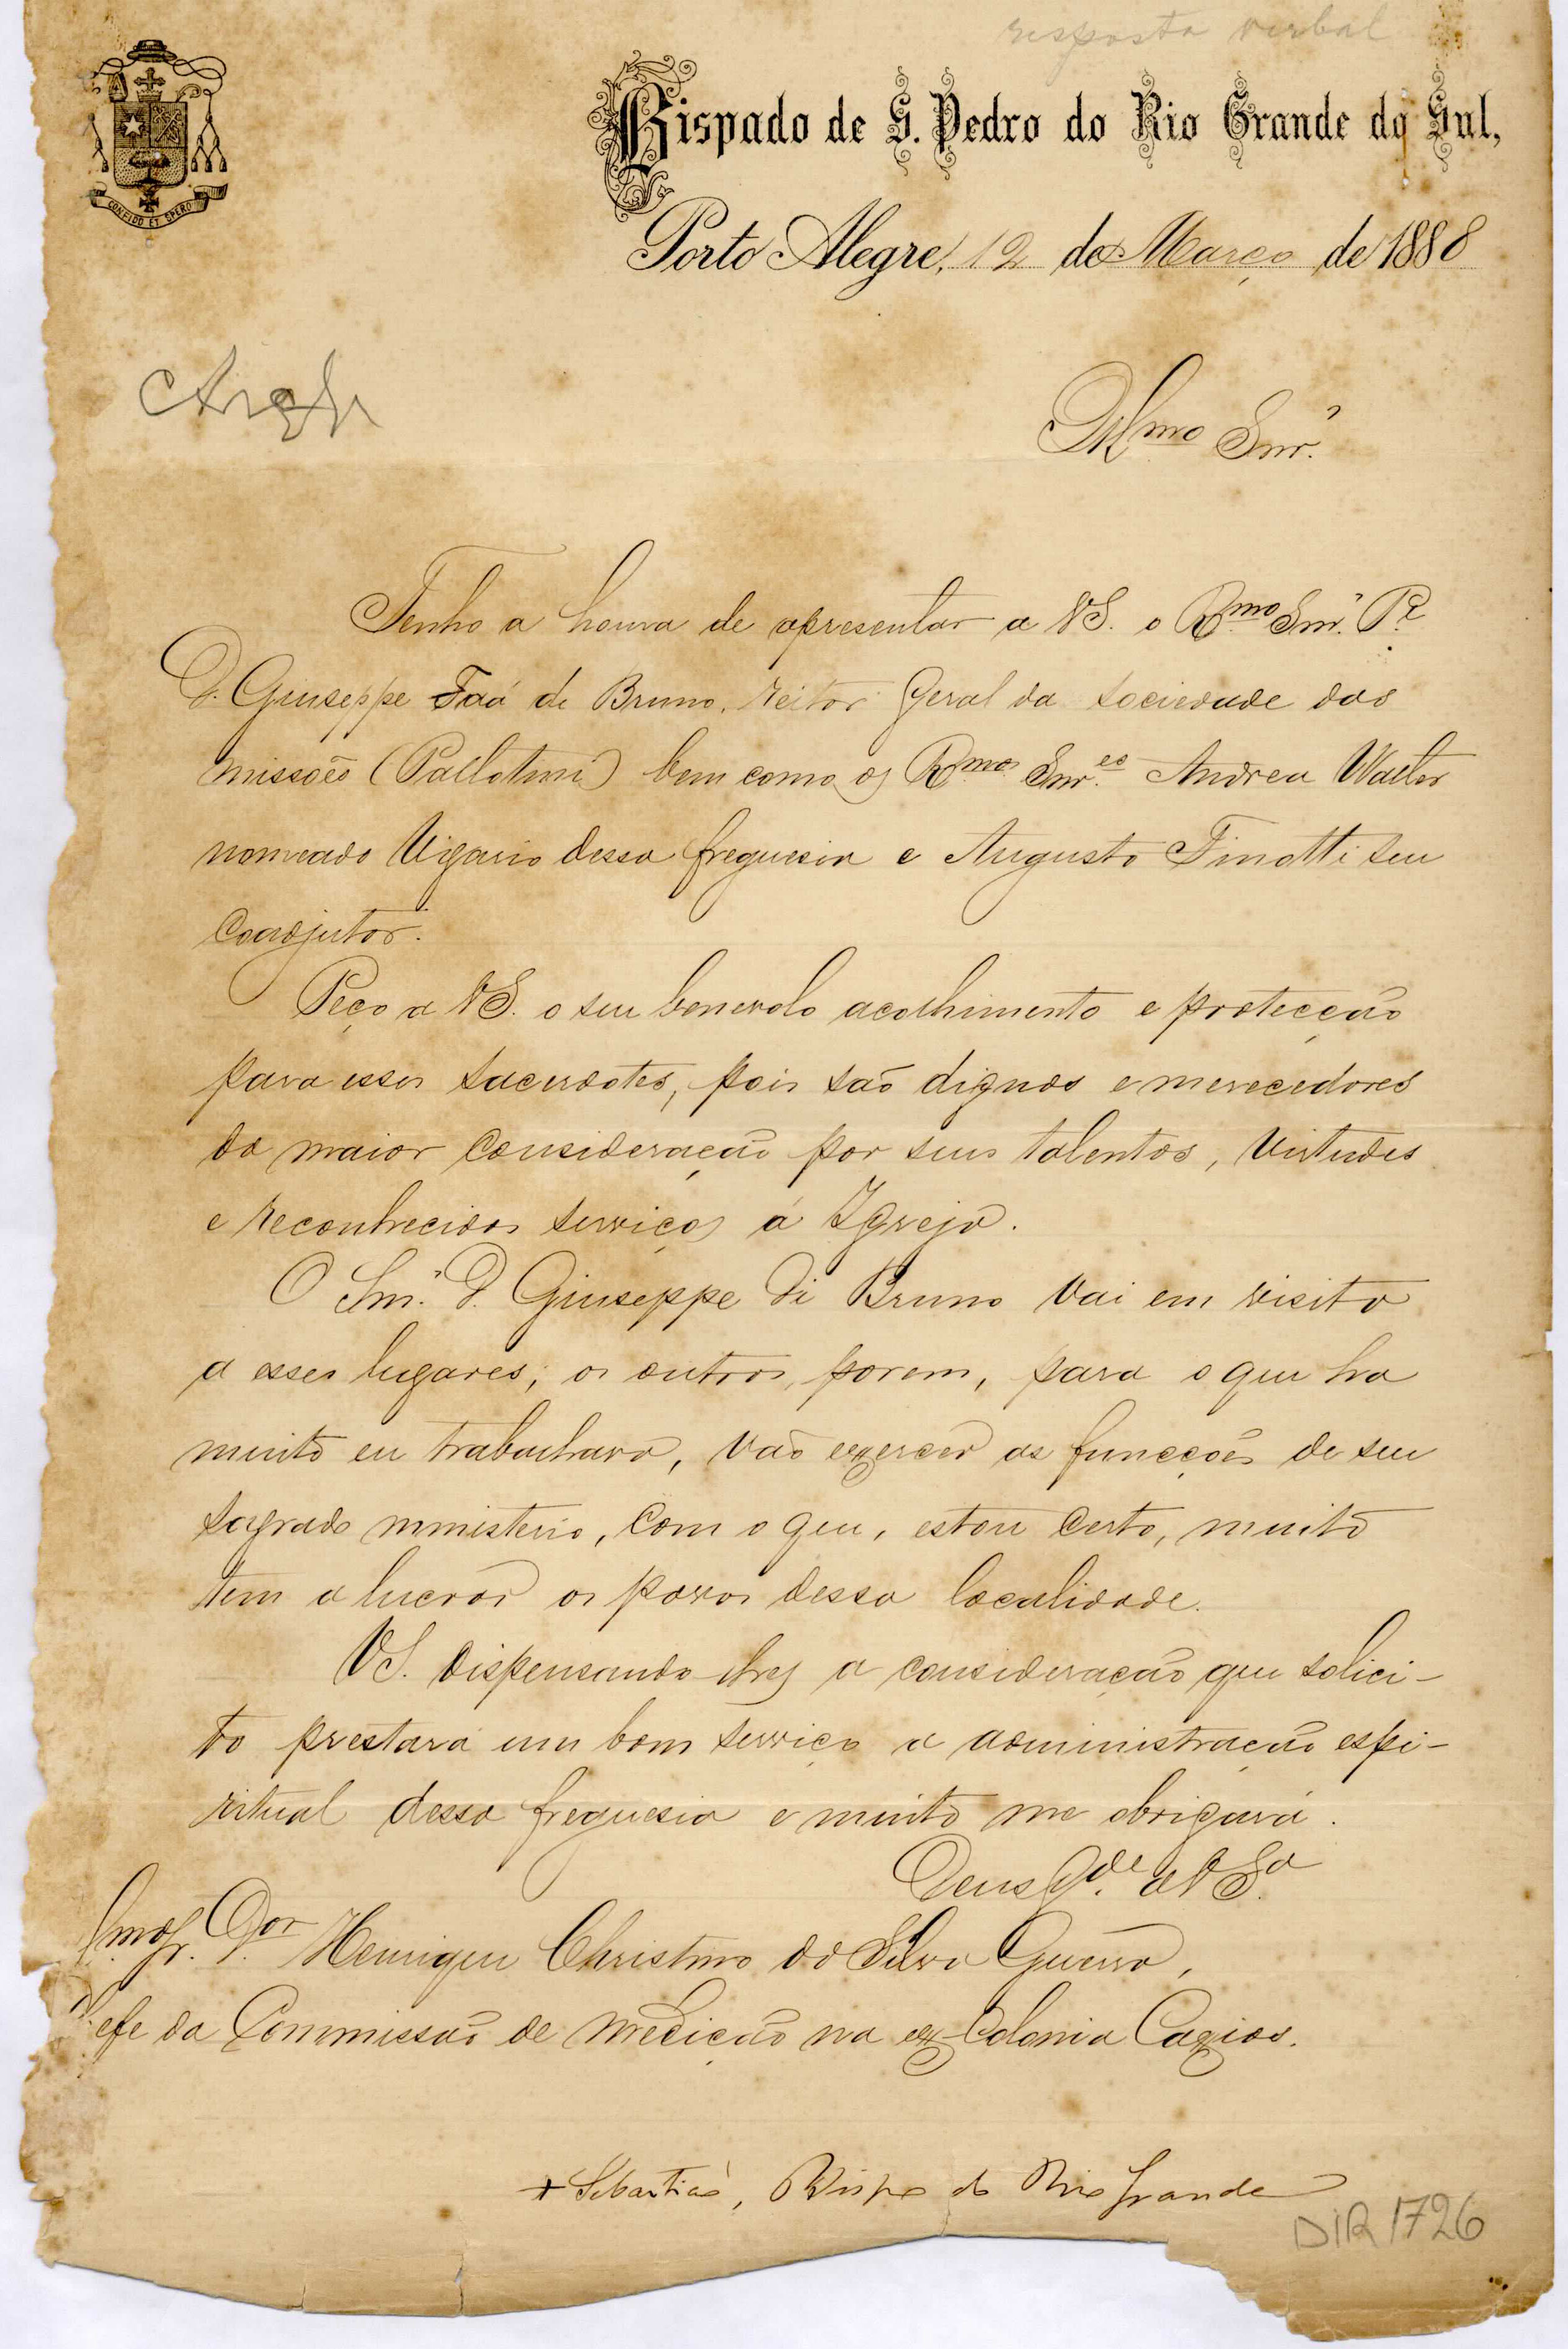 resposta verbal
Bispado de S. Pedro do Rio Grande do Sul,
CONFIDO ET SPERO
Porto Alegre, 12 de Março de 1888
Illmo Snr.
Tenho a honra de apresentar a V S. o Rmo Snr. Pe
D. Giuseppe Faá di Bruno, reitor Geral da sociedade das
missões (Pallotini) bem como os Rmos Snres Andrea Walter
nomeado Vigario dessa freguesia e Augusto Finotti seu
coadjutor.
Peço a V S. o seu benevolo acolhimento e protecção
para esses sacerdotes, pois são dignos e merecedores
da maior consideração por seus talentos, virtudes
e reconhecidos serviços á Igreja.
O Snr. D. Giuseppe di Bruno vai em visita
a esses lugares; os outros, porem, para o que ha
muito eu trabalhava, vão exercer as funcções de seu
sagrado ministerio, com o que, estou certo, muito
tem a lucrar os povos dessa localidade.
V S. dispensando-lhes a consideração que solici-
to prestará um bom serviço a administração espi-
ritual dessa freguesia e muito me obrigará.
Deus Gde a V Sa
Snr. Dor Henrique Christino da Silva Guerra,
efe da Commissão de medição na ex-Colonia Caxias.
+ Sebastião, Bispo do Rio Grande
DIR 1726